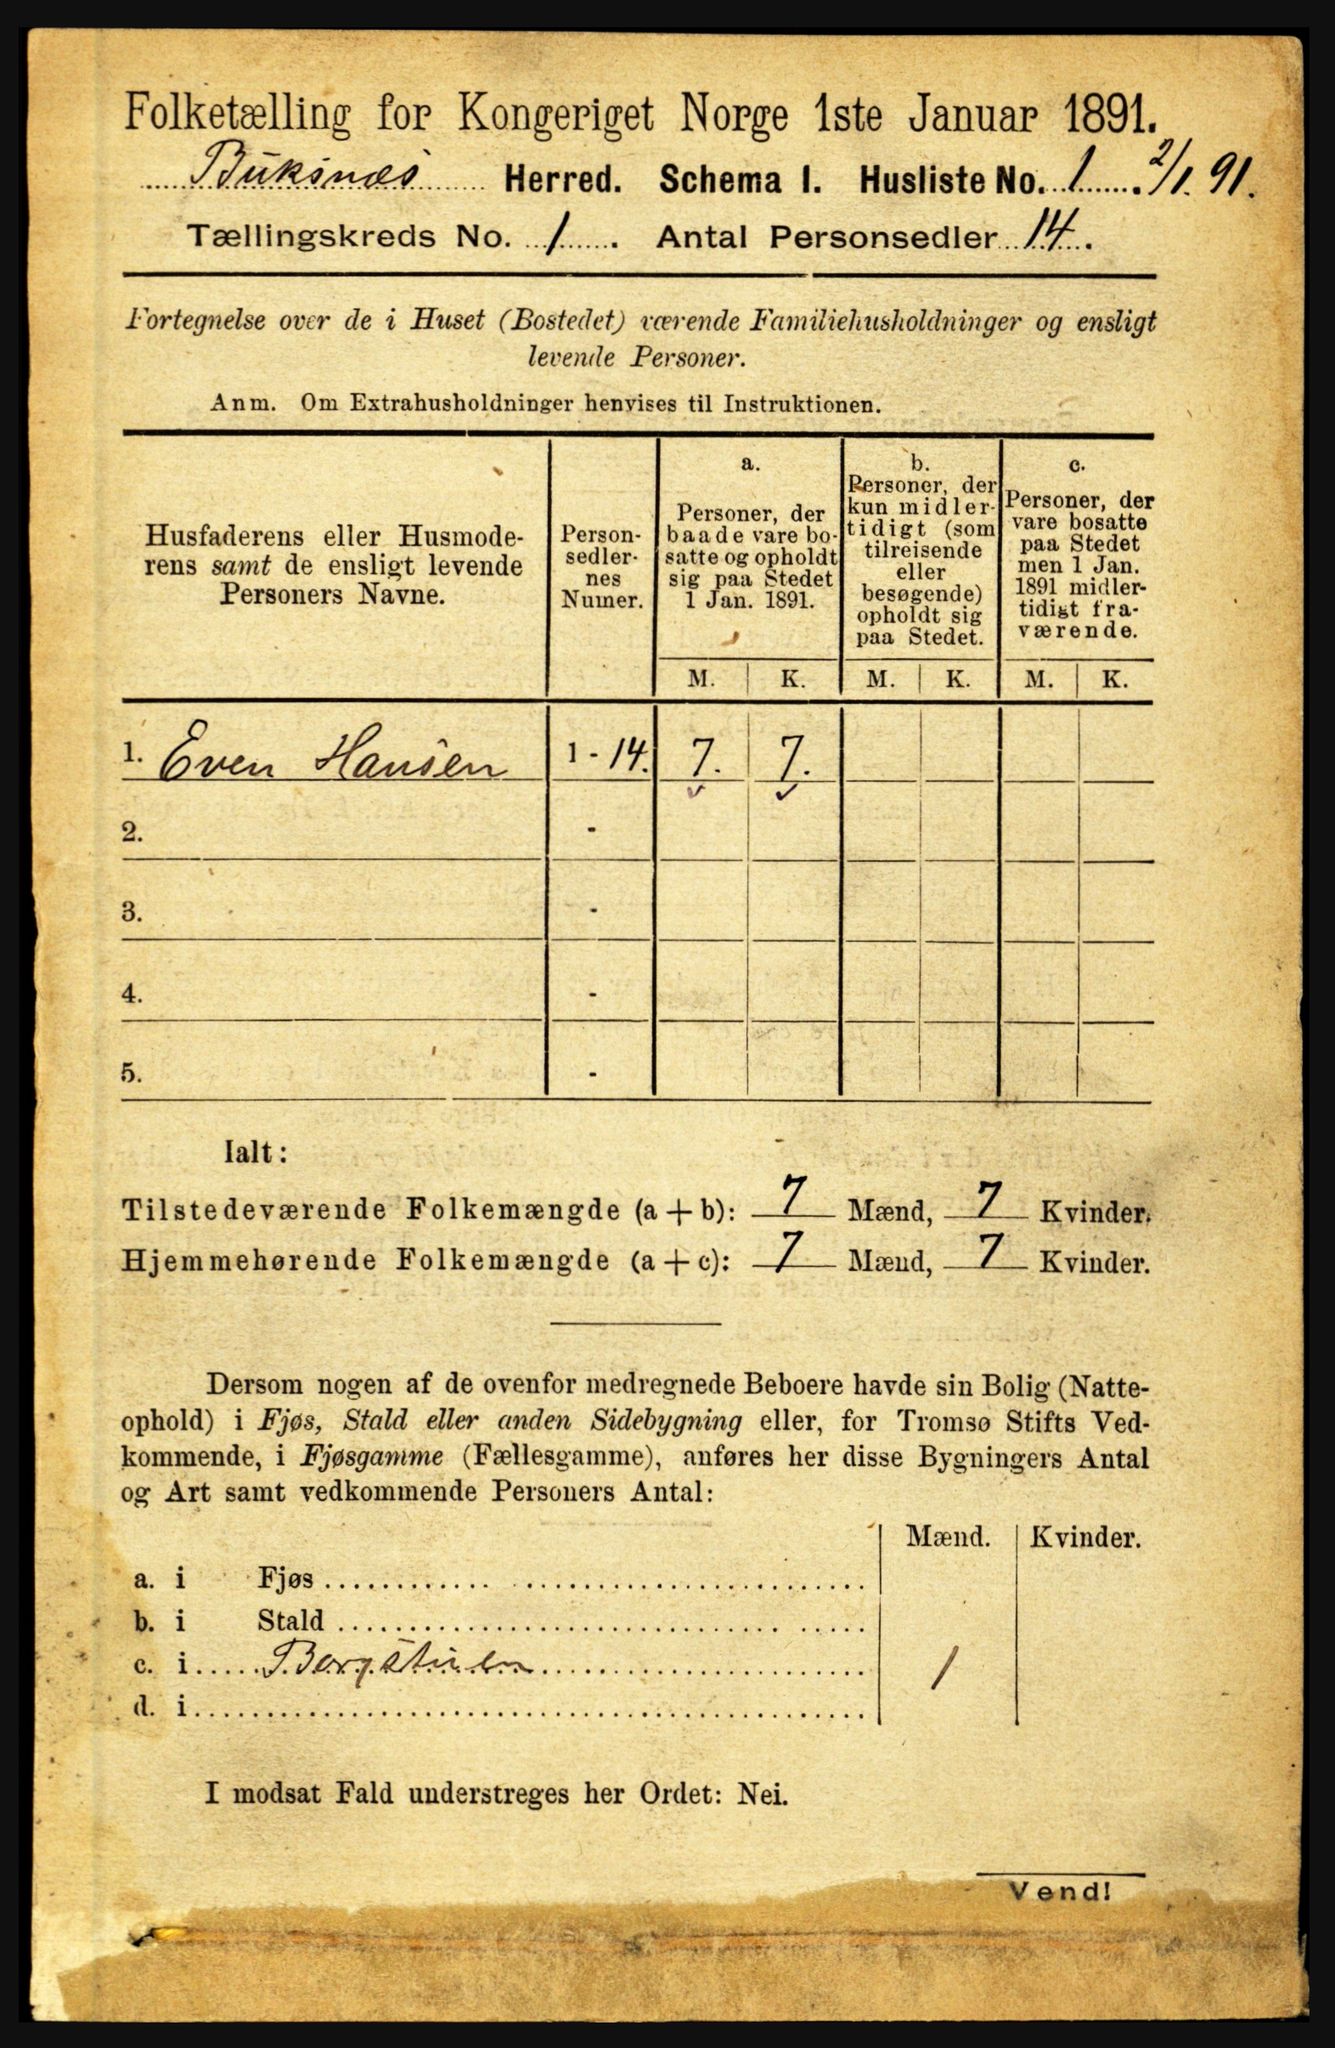 Folketælling for Kongeriget Norge 1ste Januar 1891.
Buksnæs Herred. Schema I. Husliste No. 1. 2/1. 91.
Tællingskreds No. 1. Antal Personsedler 14.
Fortegnelse over de i Huset (Bostedet) værende Familiehusholdninger og ensligt
levende Personer.
Anm. Om Extrahusholdninger henvises til Instruktionen.
Husfaderens eller Husmode-
rens samt de ensligt levende
Personers Navne.
Person-
sedler-
nes
Numer.
a.
Personer, der
baade vare bo-
satte og opholdt
sig paa Stedet
1 Jan. 1891.
b.
Personer, der
kun midler-
tidigt (som
tilreisende
eller
besøgende)
opholdt sig
paa Stedet.
c.
Personer, der
vare bosatte
paa Stedet
men 1 Jan.
1891 midler-
tidigt fra-
værende.
M. K. M. K. M. K.
1. Even Hansen 1 - 14. 7. 7.
2. -
3. -
4. -
5. -
Ialt:
Tilstedeværende Folkemængde (a + b): 7 Mænd, 7 Kvinder.
Hjemmehørende Folkemængde (a + c): 7 Mænd, 7 Kvinder.
Dersom nogen af de ovenfor medregnede Beboere havde sin Bolig (Natte-
ophold) i Fjøs, Stald eller anden Sidebygning eller, for Tromsø Stifts Ved-
kommende, i Fjøsgamme (Fællesgamme), anføres her disse Bygningers Antal
og Art samt vedkommende Personers Antal:
Mænd. Kvinder.
a. i Fjøs
b. i Stald
c. i Borgstuen 1
d. i
I modsat Fald understreges her Ordet: Nei.
Vend!